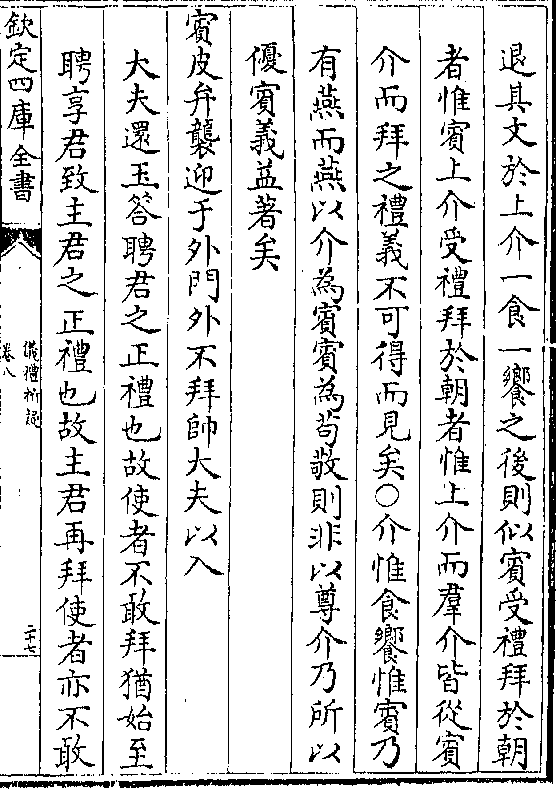 退具文於上介一食一饗之後則似賓受禮拜於朝
者惟賓上介受禮拜於朝者惟上介而羣介皆從賓
介而拜之禮義不可得而見矣○介惟食饗惟賓乃
有燕而燕以介為賓賓為苟敬則非以尊介乃所以
優賓義益著矣
賓皮弁襲迎于外門外不拜帥大夫以入
大夫還玉答聘君之正禮也故使者不敢拜猶始至
聘享君致主君之正禮也故主君再拜使者亦不敢
欽定四庫全書
儀禮析疑
卷八
二十七